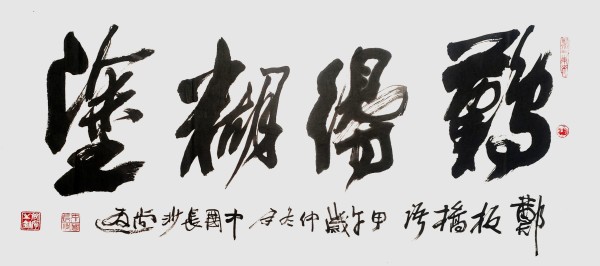 難得糊塗
鄭板橋語 甲午歲仲冬 中國長沙尚